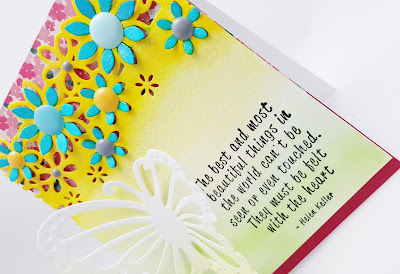 The best and most
beautiful things in
the world can't be
seen or even touched.
They must be felt
with the heart
- Helen Keller